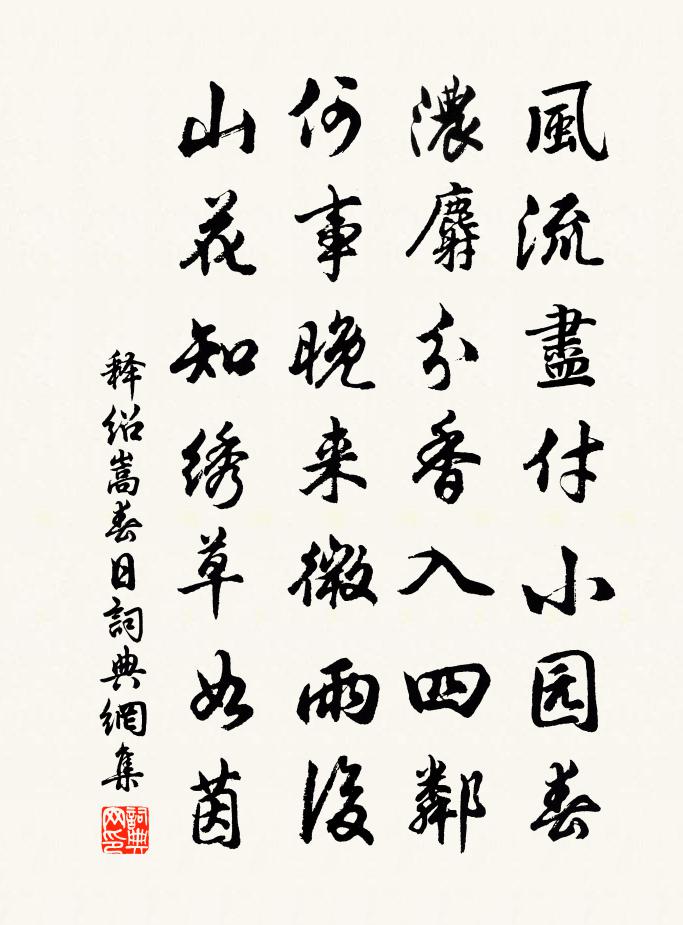 風流盡付小园春
濃麝分香入四鄰
何事晚来微雨後
山花知绣草如茵
释绍嵩春日詞典網集
詞典网印